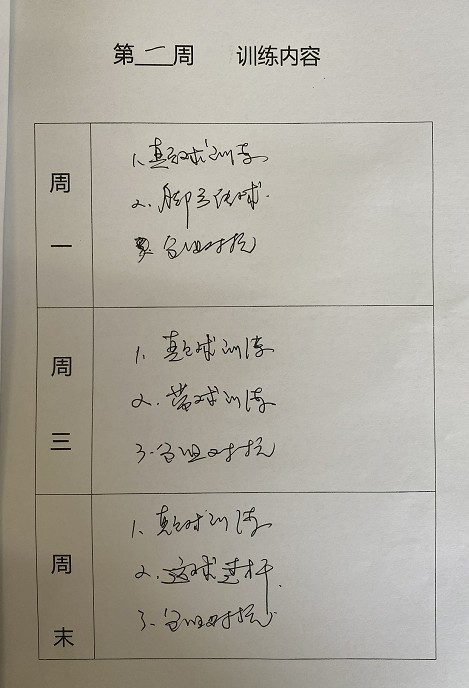 第一周 训练内容
周一
1、颠球训练
2、脚弓传球.
3、分组对抗
周三
1、颠球训练
2、带球训练
3、分组对抗
周末
1、颠球训练
2、运球过杆.
3、分组对抗